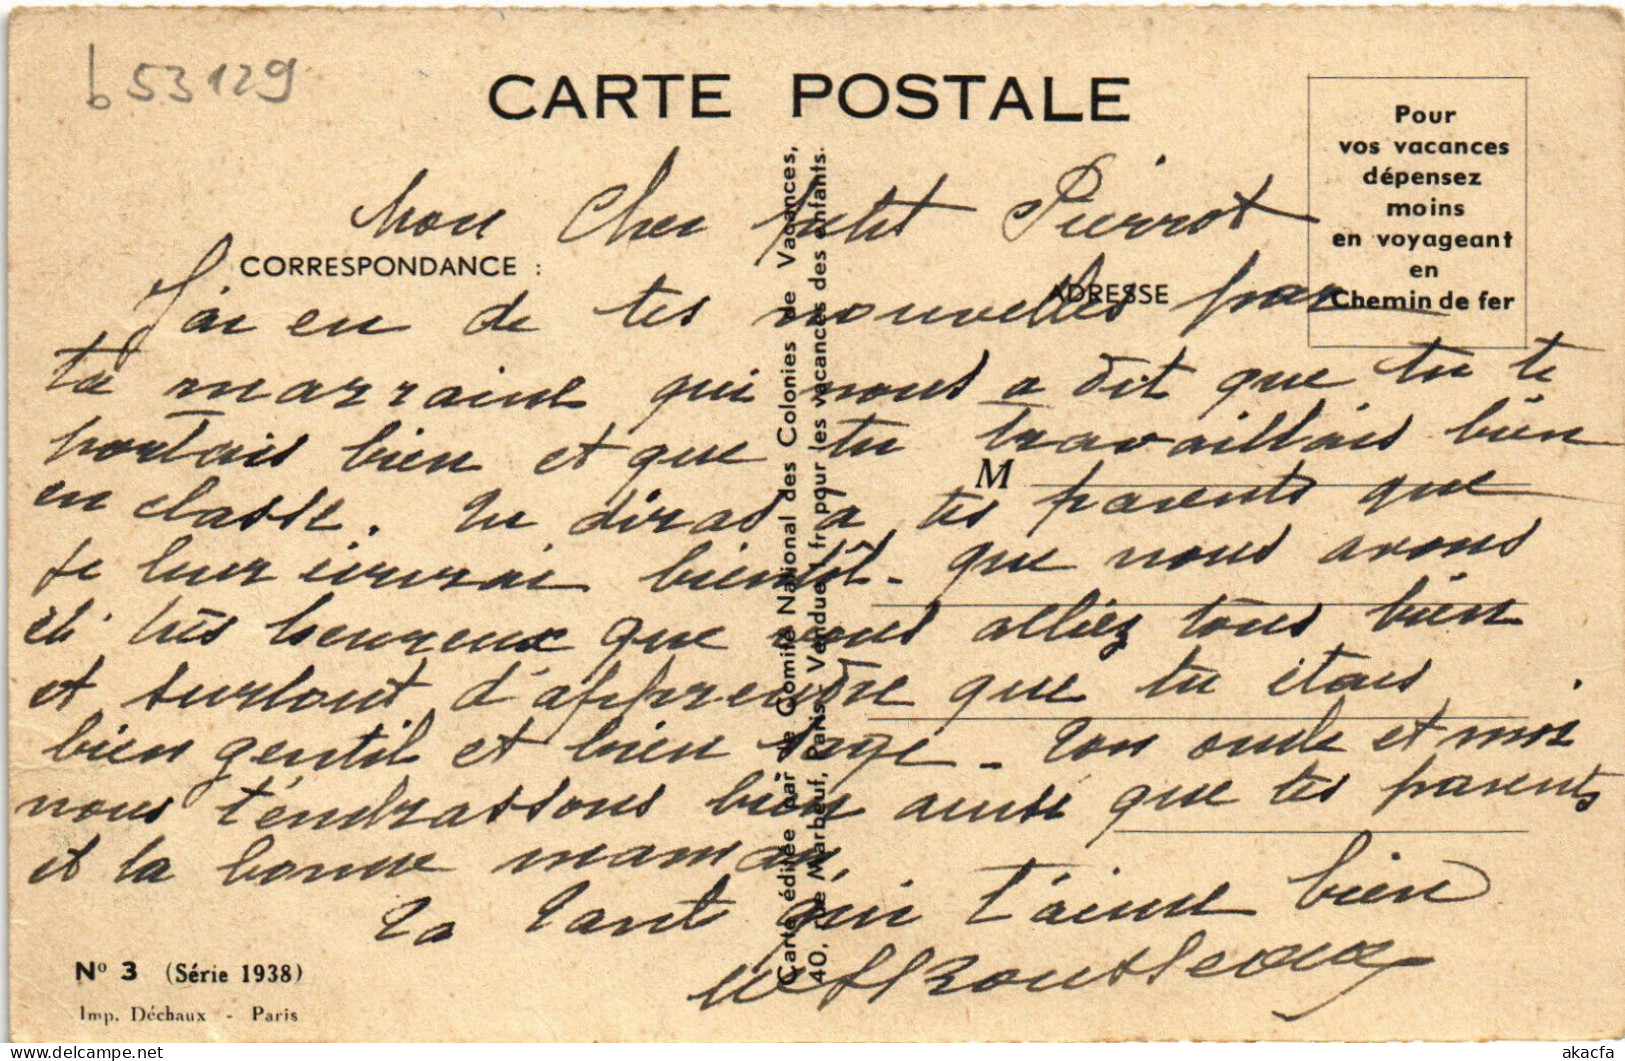 b 53129
CARTE POSTALE
Pour
vos vacances
dépensez
moins
en voyageant
en
Chemin de fer
CORRESPONDANCE :
ADRESSE
M
Mon Cher petit Pierrot
J'ai eu de tes nouvelles par
ta marraine qui nous a dit que tu te
portais bien et que tu travaillais bien
en classe. Tu diras à tes parents que
je leur écrirai bientôt - que nous avons
été très heureux que vous alliez tous bien
et surtout d'apprendre que tu étais
bien gentil et bien sage - Ton oncle et moi
nous t'endrassons bien ainsi que tes parents
et la bonne maman,
Ta Tante qui t'aime bien
Rousseaux
Carte éditée par le Comité National des Colonies de Vacances,
40, rue Marbeuf, Paris. Vendue 1 fr. pour les vacances des enfants.
N° 3 (Série 1938)
Imp. Déchaux - Paris
akacfa